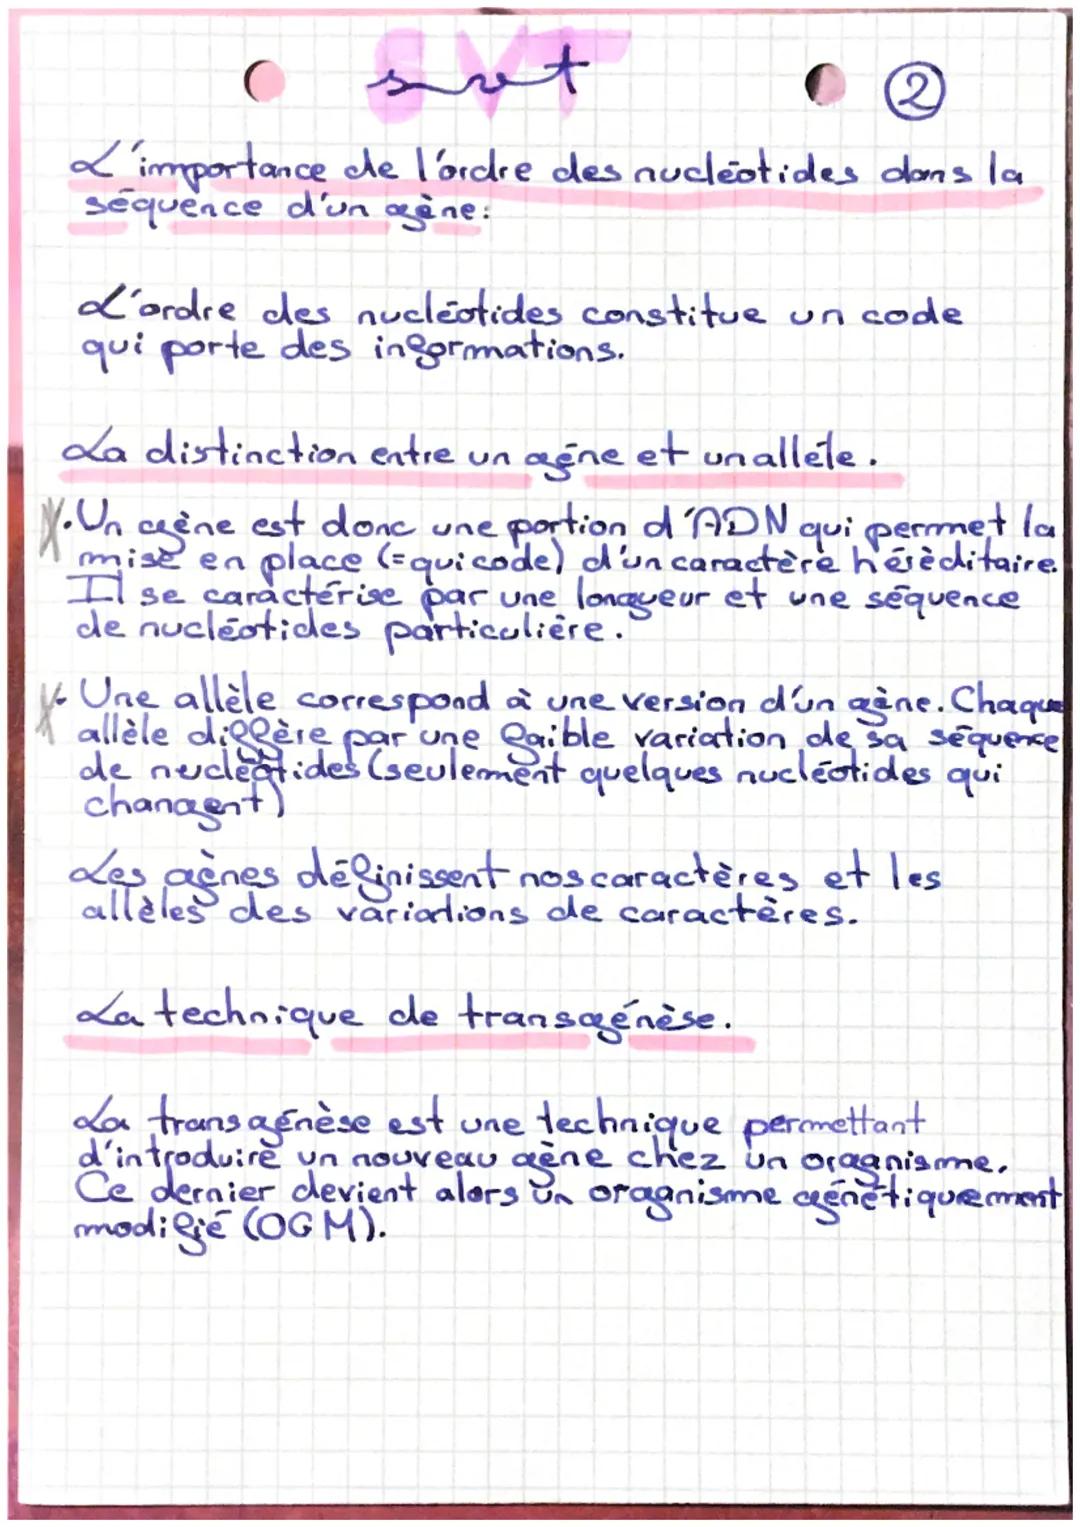 SVT
svt
②
L'importance de l'ordre des nucléotides dans la
séquence d'un gène:
L'ordre des nucléotides constitue un code
qui porte des informations.
La distinction entre un gène et un allèle.
. Un gène est donc une portion d'ADN qui permet la
mise en place (= qui code) d'un caractère héréditaire.
Il se caractérise par une longueur et une séquence
de nucléotides particulière.
. Une allèle correspond à une version d'un gène. Chaque
allèle diffère par une faible variation de sa séquence
de nucléotides (seulement quelques nucléotides qui
changent)
Les gènes définissent nos caractères et les
allèles des variations de caractères.
La technique de transgénèse.
La transgénèse est une technique permettant
d'introduire un nouveau gène chez un organisme.
Ce dernier devient alors un organisme génétiquement
modifié (OGM).